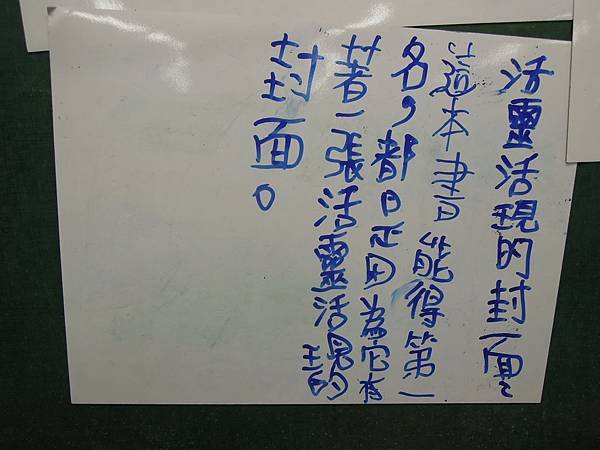 活靈活現的封面
這本書能得第一
名，都是因為它有
著一張活靈活現的
封面。